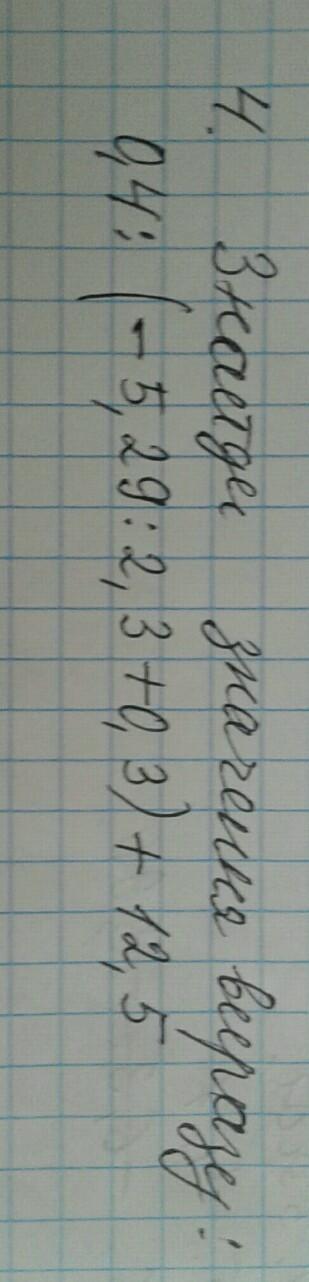 4. Знайди значення виразу:
0,4 : (-5,29 : 2,3 + 0,3) + 12,5